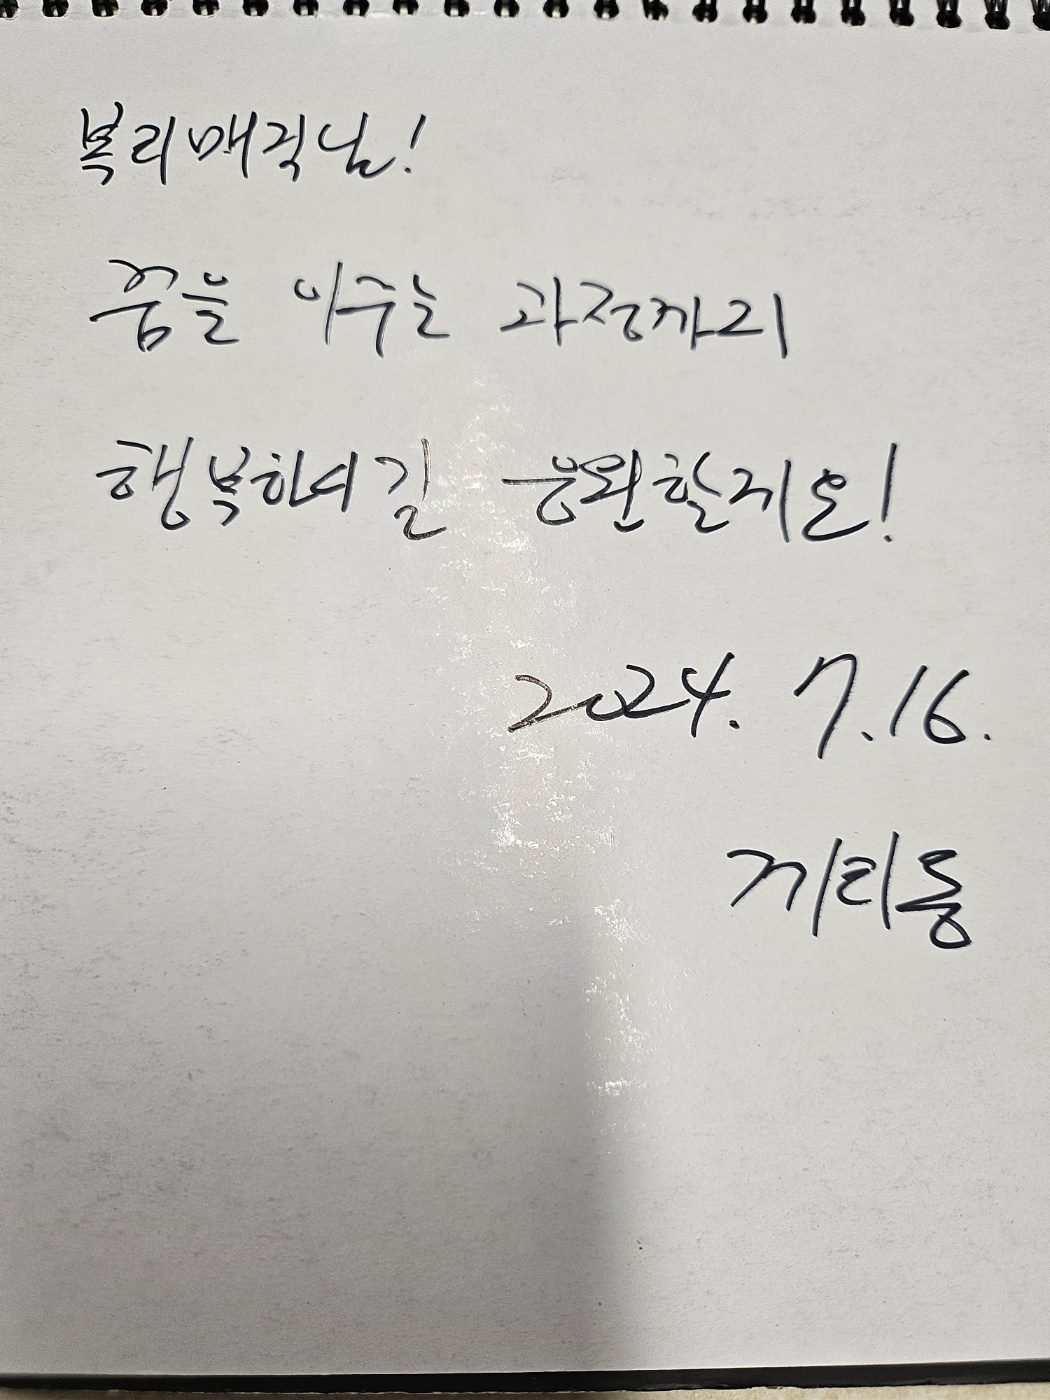 복리매직님!
꿈을 이루는 과정까지
행복하시길 응원할게요!
2024. 7.16.